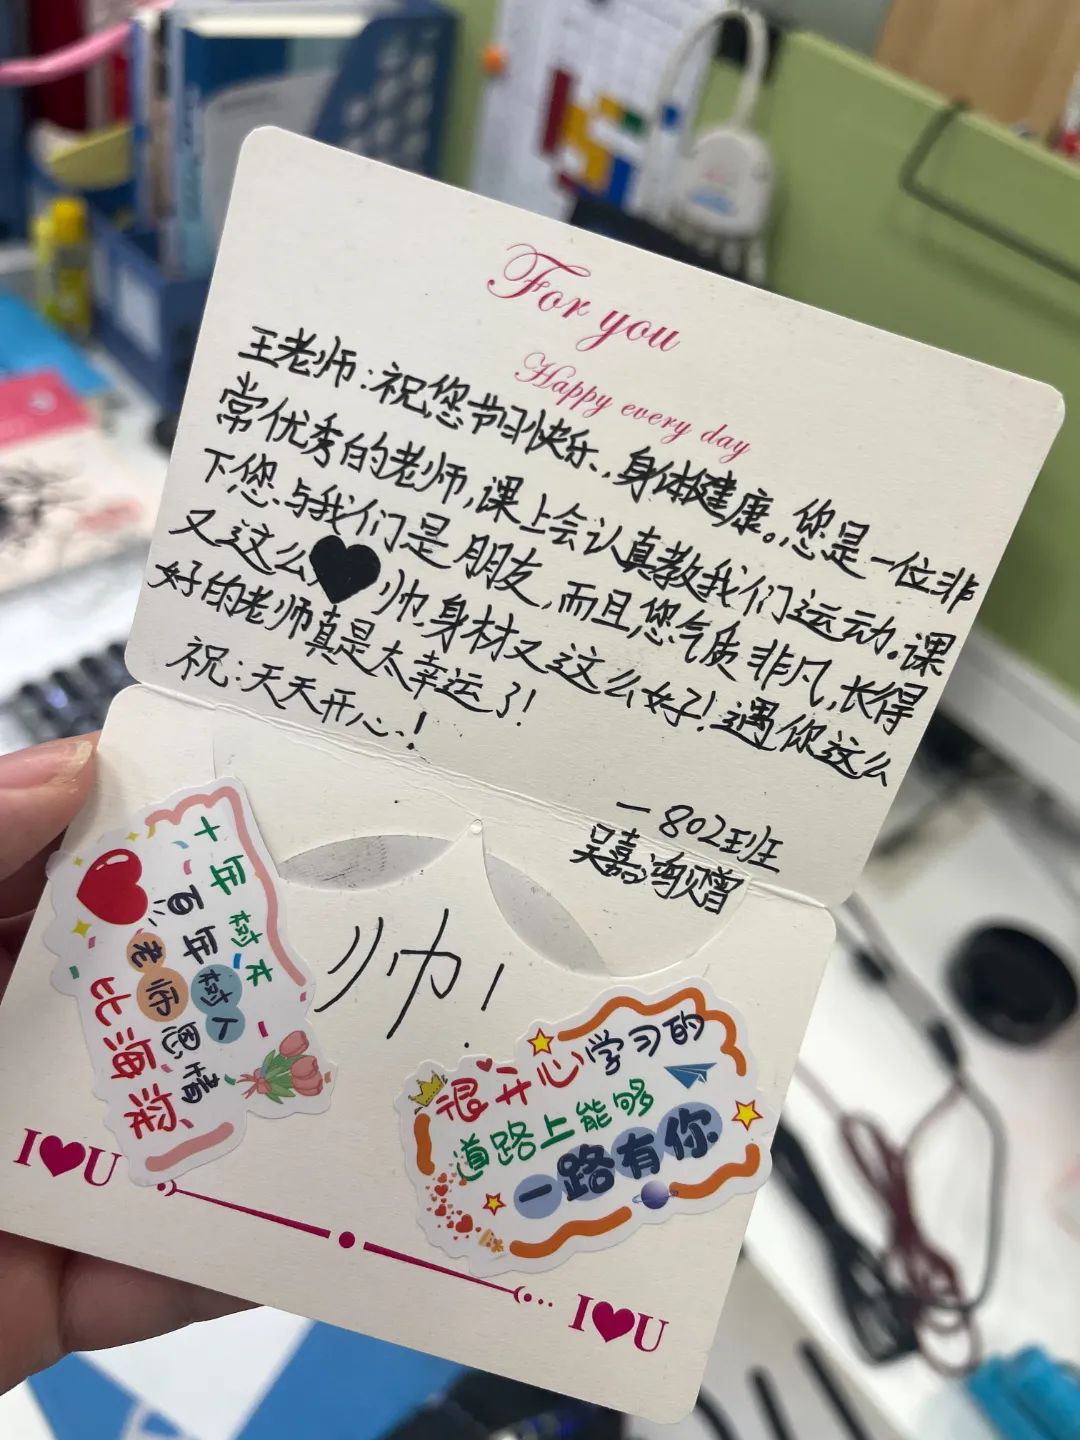 For you
Happy every day
王老师:祝您节日快乐,身体健康。您是一位非
常优秀的老师,课上会认真教我们运动。课
下您与我们是朋友,而且您气质非凡,长得
又这么帅,身材又这么好!遇你这么
好的老师真是太幸运了!
祝:天天开心!
一802班
吴嘉
帅!
十年树木
百年树人
老师恩情
比海深
很开心学习的
道路上能够
一路有你
I♥U
I♥U